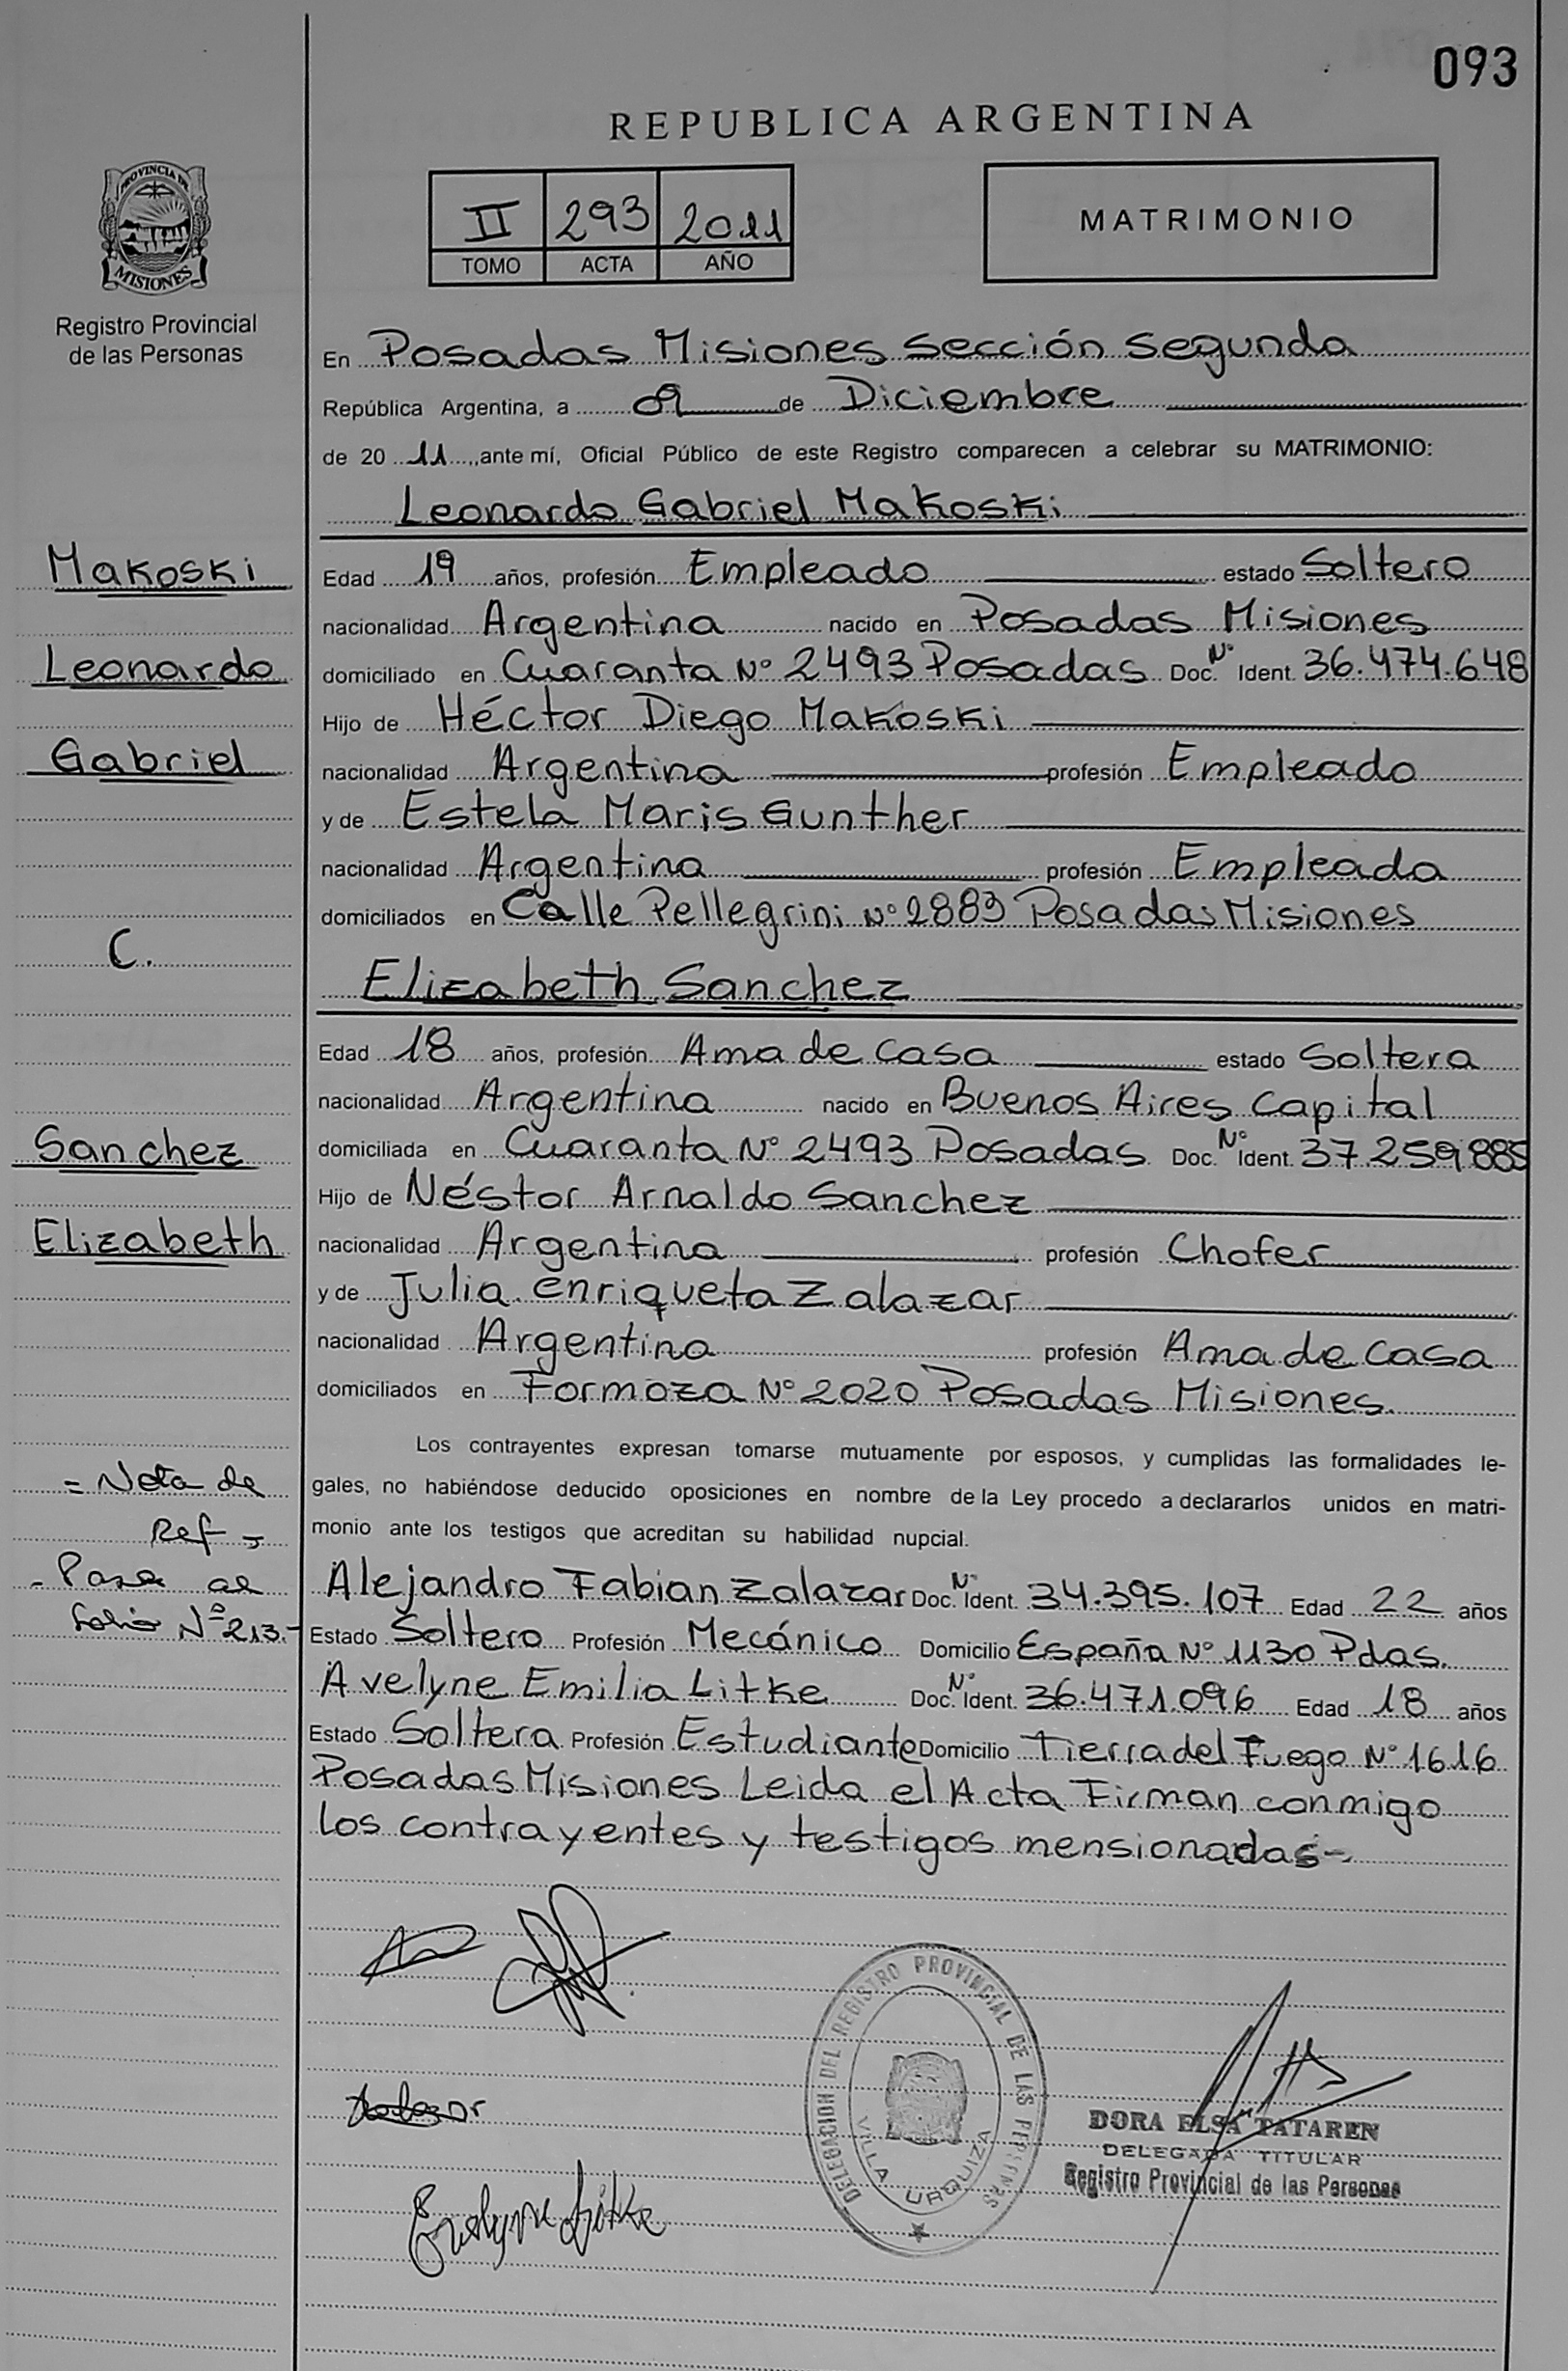 093
REPUBLICA ARGENTINA
PROVINCIA DE
MISIONES
Registro Provincial
de las Personas
II 293 2011
TOMO ACTA AÑO
MATRIMONIO
En Posadas Misiones Sección Segunda
República Argentina, a 09 de Diciembre
de 20 11, ante mí, Oficial Público de este Registro comparecen a celebrar su MATRIMONIO:
Leonardo Gabriel Makoski
Makoski
Edad 19 años, profesión Empleado estado Soltero
nacionalidad Argentina nacido en Posadas Misiones
Leonardo
domiciliado en Cuaranta Nº 2493 Posadas Doc. Nº Ident. 36.474.648
Hijo de Héctor Diego Makoski
Gabriel
nacionalidad Argentina profesión Empleado
y de Estela Maris Gunther
nacionalidad Argentina profesión Empleada
domiciliados en Calle Pellegrini Nº 2883 Posadas Misiones
C.
Elizabeth Sanchez
Edad 18 años, profesión Ama de casa estado Soltera
nacionalidad Argentina nacido en Buenos Aires Capital
Sanchez
domiciliada en Cuaranta Nº 2493 Posadas Doc. Nº Ident. 37.259.885
Hijo de Néstor Arnaldo Sanchez
Elizabeth
nacionalidad Argentina profesión Chofer
y de Julia enriqueta Zalazar
nacionalidad Argentina profesión Ama de casa
domiciliados en Formoza Nº 2020 Posadas Misiones.
Los contrayentes expresan tomarse mutuamente por esposos, y cumplidas las formalidades le-
gales, no habiéndose deducido oposiciones en nombre de la Ley procedo a declararlos unidos en matri-
monio ante los testigos que acreditan su habilidad nupcial.
= Nota de
Ref =
- Pasa al
folio Nº 213.-
Alejandro Fabian Zalazar Doc. Nº Ident. 34.395.107 Edad 22 años
Estado Soltero Profesión Mecánico Domicilio España Nº 1130 Pdas.
Avelyne Emilia Litke Doc. Nº Ident. 36.471.096 Edad 18 años
Estado Soltera Profesión Estudiante Domicilio Tierra del Fuego Nº 1616
Posadas Misiones Leida el Acta Firman conmigo
los contrayentes y testigos mensionadas-
Zalazar
Evelyne Litke
DELEGACION DEL REGISTRO PROVINCIAL DE LAS PERSONAS
VILLA URQUIZA
DORA ELSA TATAREN
DELEGADA TITULAR
Registro Provincial de las Personas